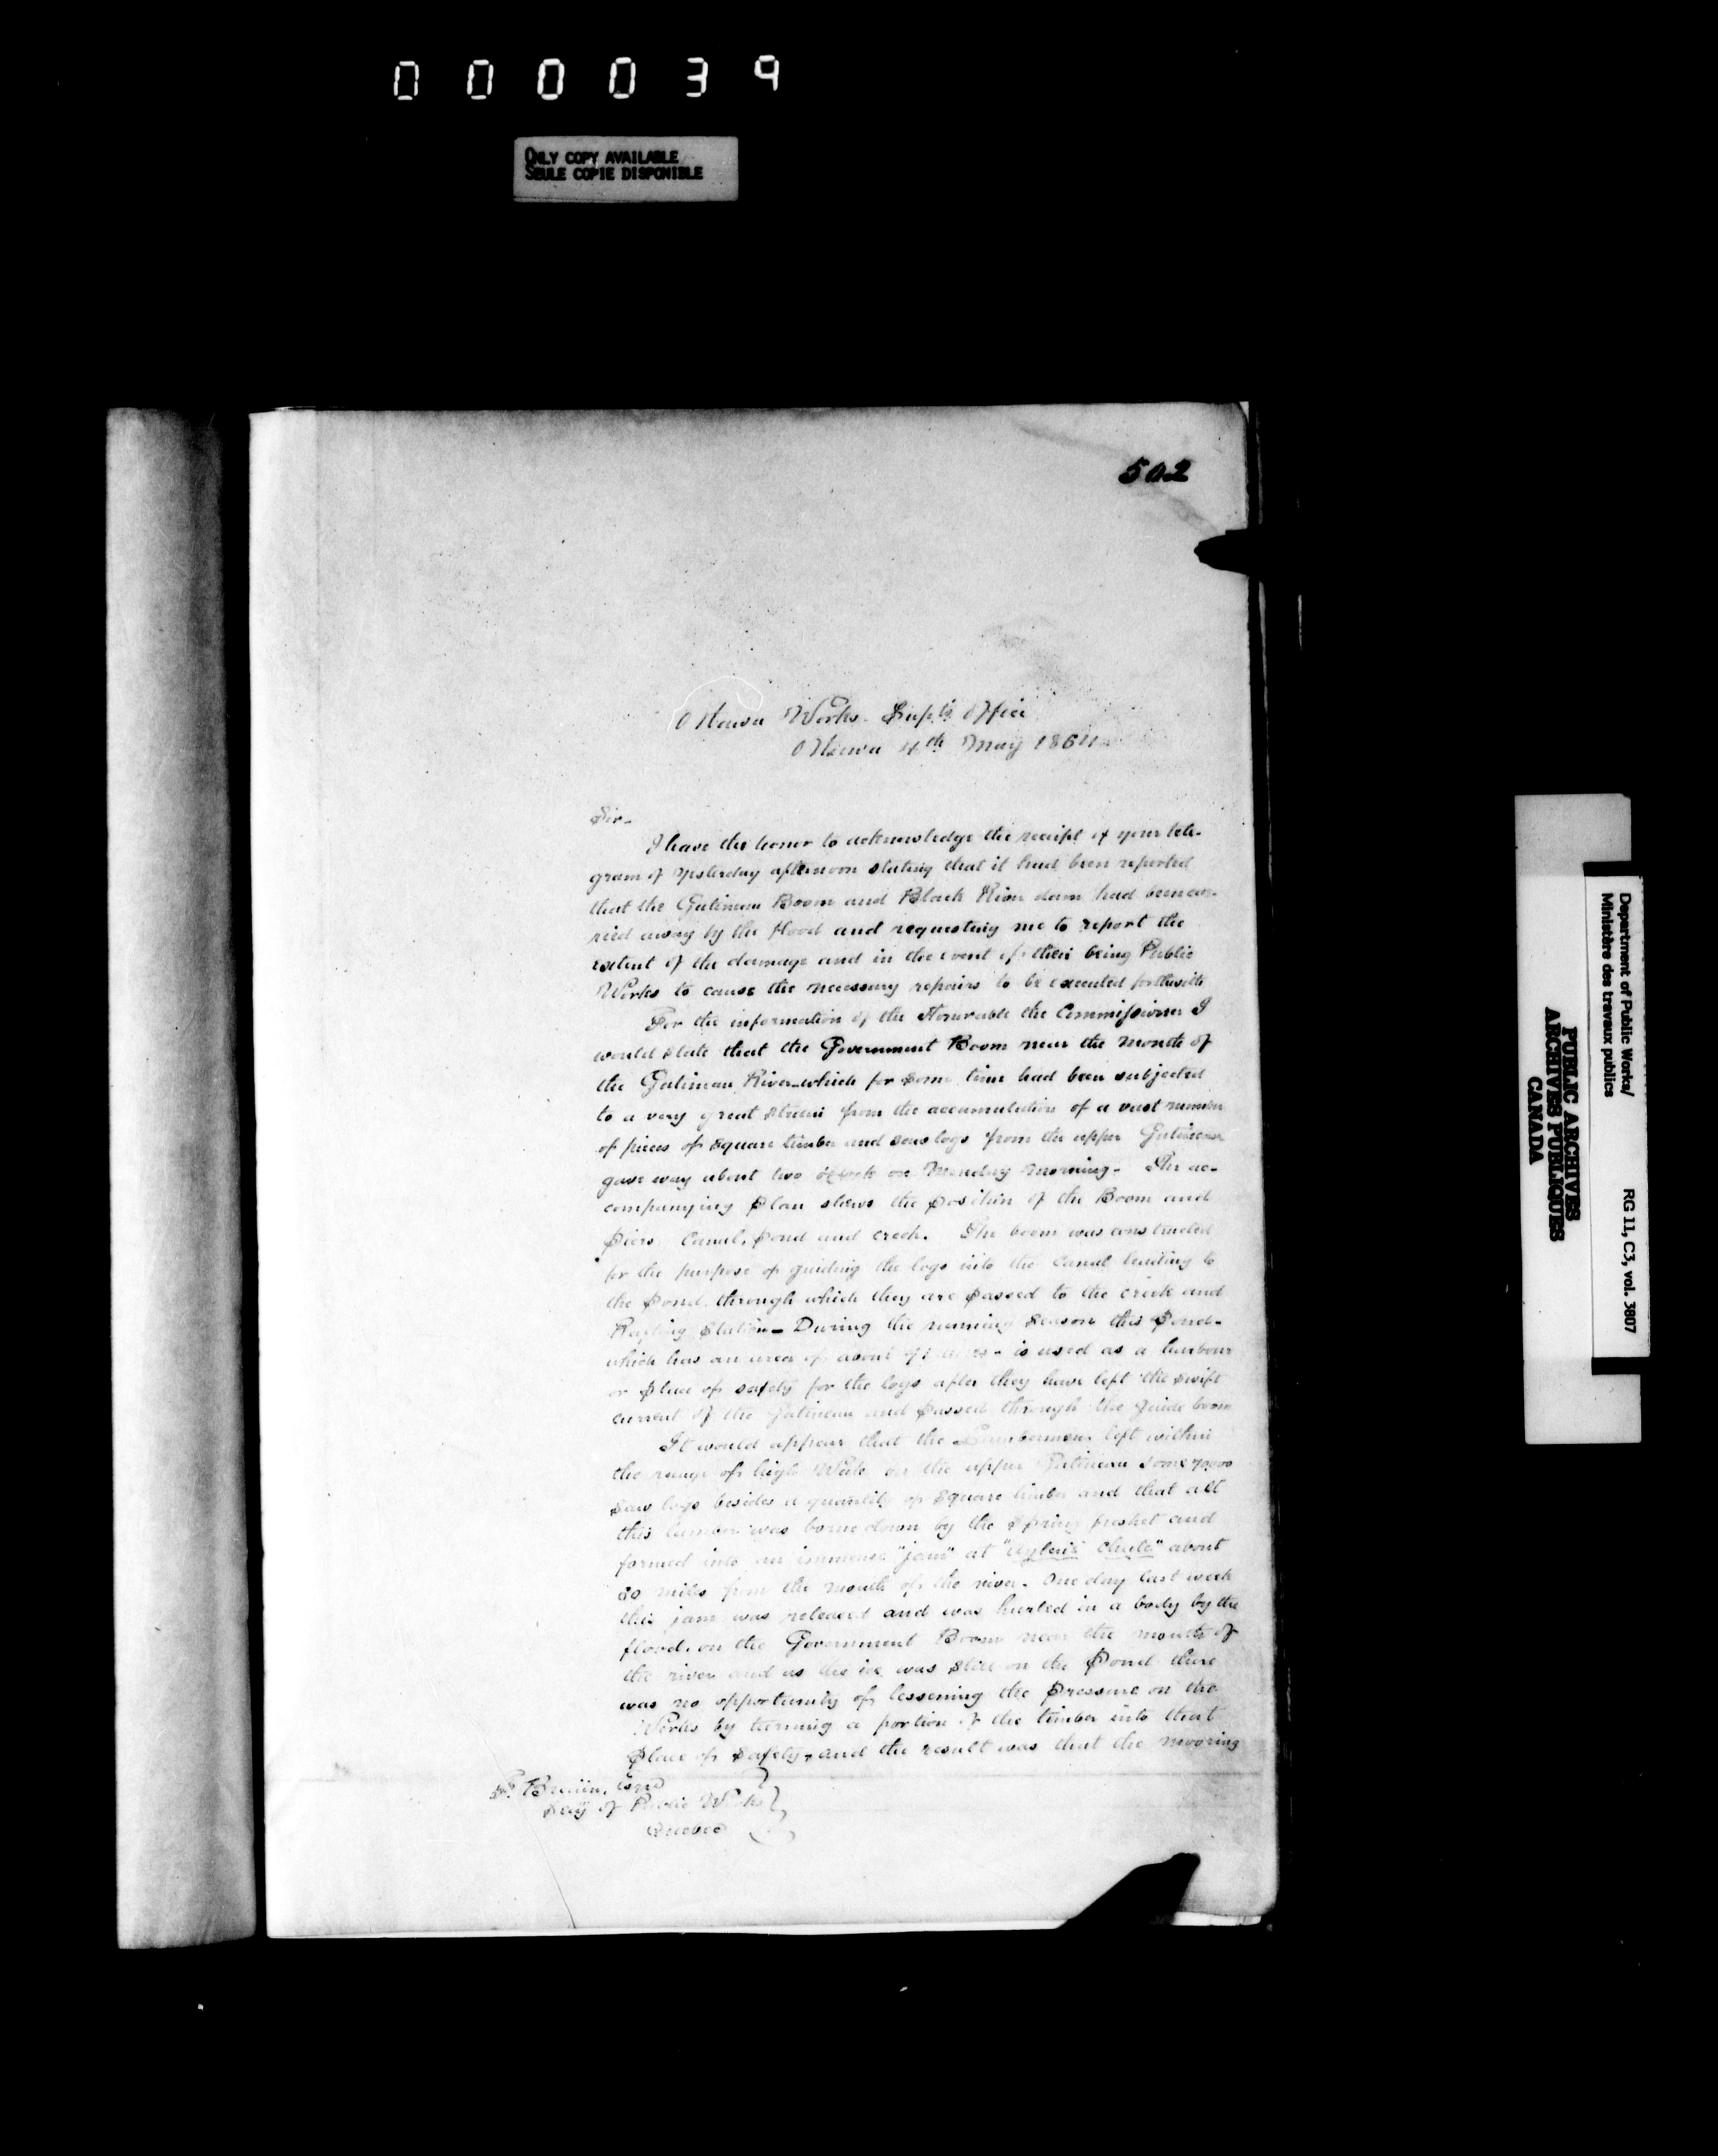 000039
ONLY COPY AVAILABLE
SEULE COPIE DISPONIBLE
502
Ottawa Works Supts Office
Ottawa 4th May 1864
Sir-
I have the honor to acknowledge the receipt of your tele-
gram of yesterday afternoon stating that it had been reported
that the Gatineau Boom and Black River dam had been car-
ried away by the flood and requesting me to report the
extent of the damage and in the event of their being Public
Works to cause the necessary repairs to be executed forthwith
For the information of the Honorable the Commissioner I
would state that the Government Boom near the mouth of
the Gatineau River which for some time had been subjected
to a very great strain from the accumulation of a vast number
of pieces of square timber and saw logs from the upper Gatineau
gave way about two o'clock on Monday morning- The ac-
companying plan shews the position of the Boom and
Piers Canal, pond and creek. The boom was constructed
for the purpose of guiding the logs into the Canal leading to
the Pond through which they are passed to the creek and
Rafting Station- During the running season this Pond-
which has an area of about - is used as a harbour
or place of safety for the logs after they have left the swift
current of the Gatineau and passed through the guide boom
It would appear that the Lumbermen left within
the range of high Water on the upper Gatineau some
saw logs besides a quantity of square timber and that all
this lumber was borne down by the spring freshet and
formed into an immense "jam" at " Chute" about
30 miles from the mouth of the river. One day last week
this jam was released and was hurled in a body by the
flood, on the Government Boom near the mouth of
the river and as the ice was still on the Pond there
was no opportunity of lessening the pressure on the
Works by turning a portion of the timber into that
place of safety, and the result was that the mooring
Esqre
Secy of Public Works
Quebec
Department of Public Works/
Ministère des travaux publics
RG 11, C3, vol. 3807
PUBLIC ARCHIVES
ARCHIVES PUBLIQUES
CANADA